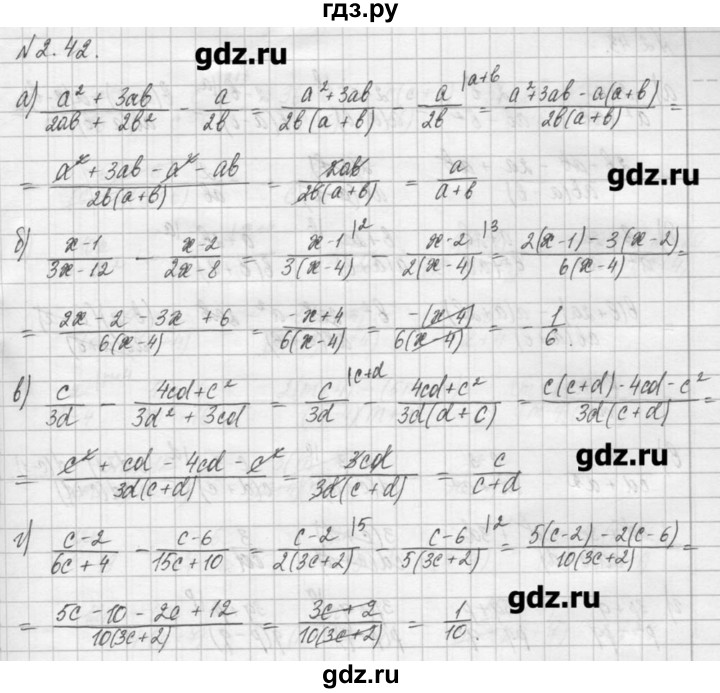 гдз.ру
№2.42.
gdz.ru
а) (a² + 3ab)/(2ab + 2b²) - a/(2b) = (a² + 3ab)/(2b(a + b)) - a/(2b) |a+b = (a² + 3ab - a(a + b))/(2b(a + b)) =
= (a² + 3ab - a² - ab)/(2b(a + b)) = 2ab/(2b(a + b)) = a/(a + b)
gdz.ru
б) (x - 1)/(3x - 12) - (x - 2)/(2x - 8) = (x - 1)/(3(x - 4)) |2 - (x - 2)/(2(x - 4)) |3 = (2(x - 1) - 3(x - 2))/(6(x - 4)) =
= (2x - 2 - 3x + 6)/(6(x - 4)) = (-x + 4)/(6(x - 4)) = -(x - 4)/(6(x - 4)) = -1/6.
в) c/(3d) - (4cd + c²)/(3d² + 3cd) = c/(3d) |c+d - (4cd + c²)/(3d(d + c)) = (c(c + d) - 4cd - c²)/(3d(c + d)) =
gdz.ru
= (c² + cd - 4cd - c²)/(3d(c + d)) = 3cd/(3d(c + d)) = c/(c + d)
г) (c - 2)/(6c + 4) - (c - 6)/(15c + 10) = (c - 2)/(2(3c + 2)) |5 - (c - 6)/(5(3c + 2)) |2 = (5(c - 2) - 2(c - 6))/(10(3c + 2)) =
gdz.ru
= (5c - 10 - 2c + 12)/(10(3c + 2)) = (3c + 2)/(10(3c + 2)) = 1/10.
gdz.ru